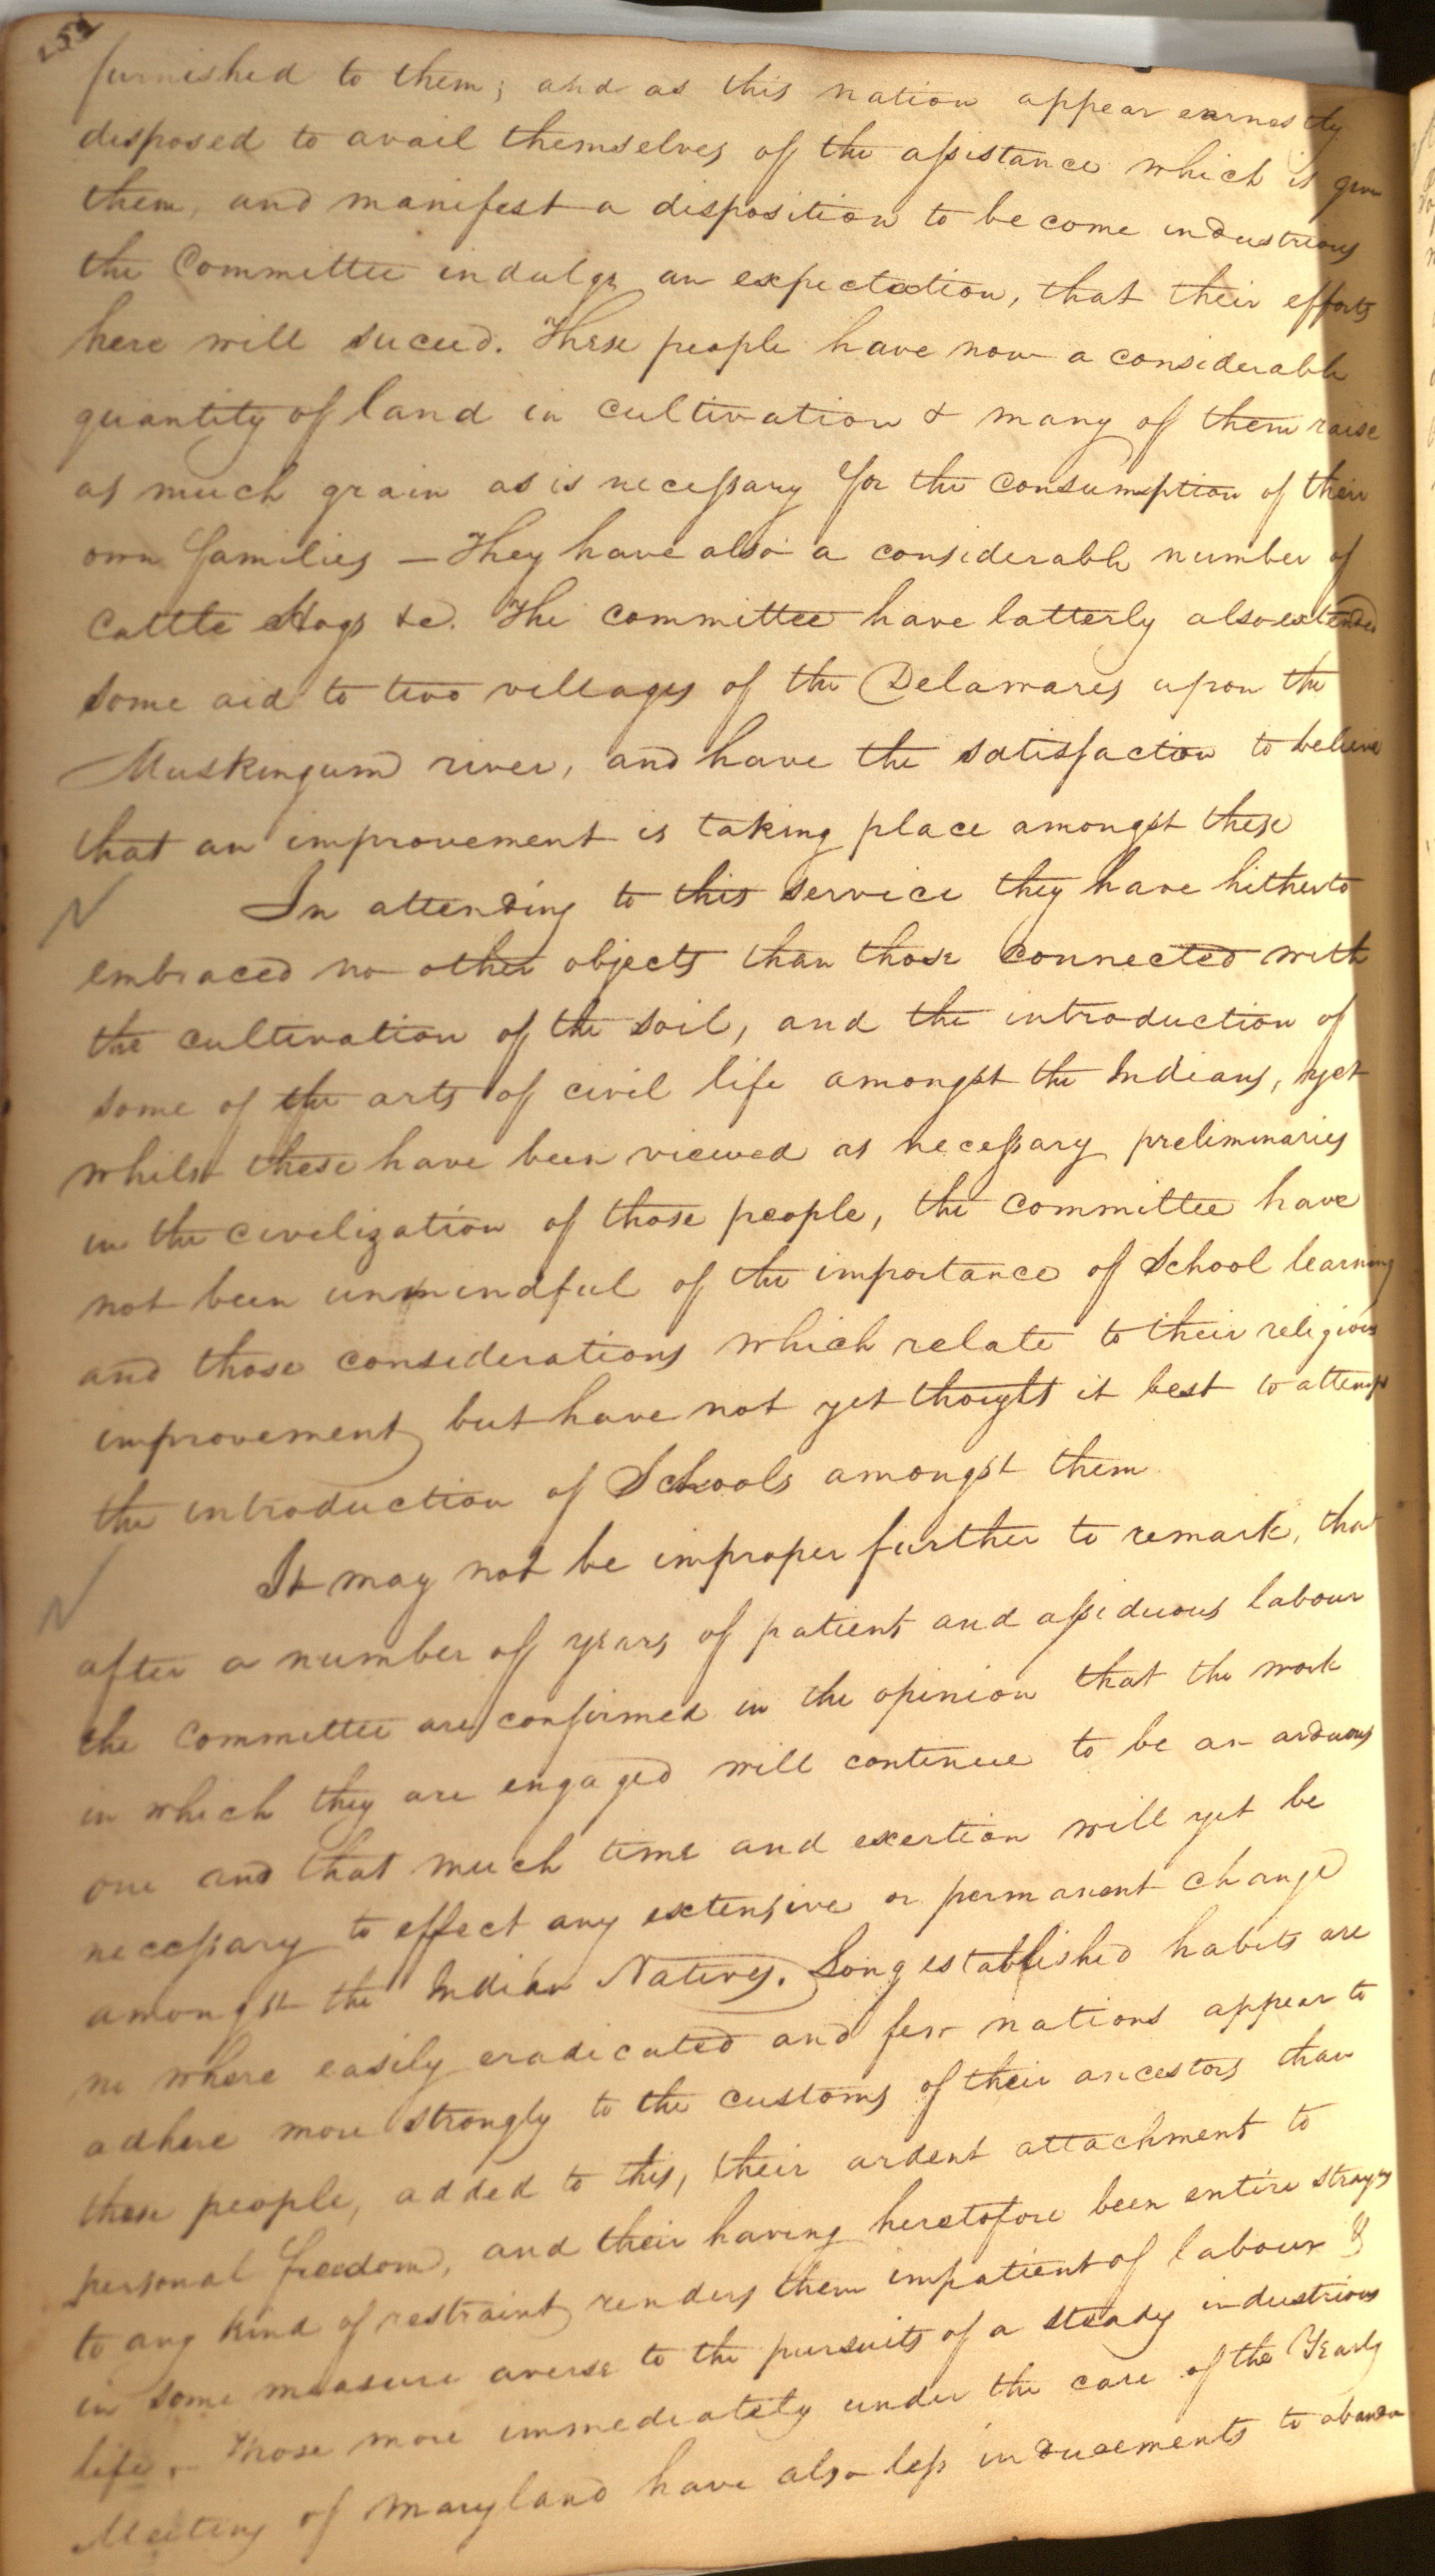 furnished to them; and as this nation appear earnestly
disposed to avail themselves of the assistance which is given
them, and manifest a disposition to become industrious
the Committee indulge an expectation, that their efforts
here will suceed. These people have now a considerable
quantity of land in cultivation & many of them raise
as much grain as is necessary for the consumption of their
own families — They have also a considerable number of
Cattle Hogs &c. The committee have latterly also extended
some aid to two villages of the Delawares upon the
Muskingum river, and have the satisfaction to believe
that an improvement is taking place amongst these
In attending to this service they have hitherto
embraced no other objects than those connected with
the cultivation of the soil, and the introduction of
some of the arts of civil life amongst the Indians, yet
whilst these have been viewed as necessary preliminaries
in the civelization of those people, the committee have
not been unmindful of the importance of School learning
and those considerations which relate to their religious
improvement but have not yet thought it best to attempt
the introduction of Schools amongst them
It may not be improper further to remark, that
after a number of years of patient and assiduous labour
the committee are confirmed in the opinion that the work
in which they are engaged will continue to be an arduous
one and that much time and exertion will yet be
necessary to effect any extensive or permanent change
amongst the Indian Natives. Long established habits are
no where easily eradicated and few nations appear to
adhere more strongly to the customs of their ancestors than
these people, added to this, their ardent attachment to
personal freedom, and their having heretofore been entire strangers
to any kind of restraint renders them impatient of labour &
in some measure averse to the pursuits of a steady industrious
life. Those more immediately under the care of the Yearly
Meeting of Maryland have also less inducements to abandon